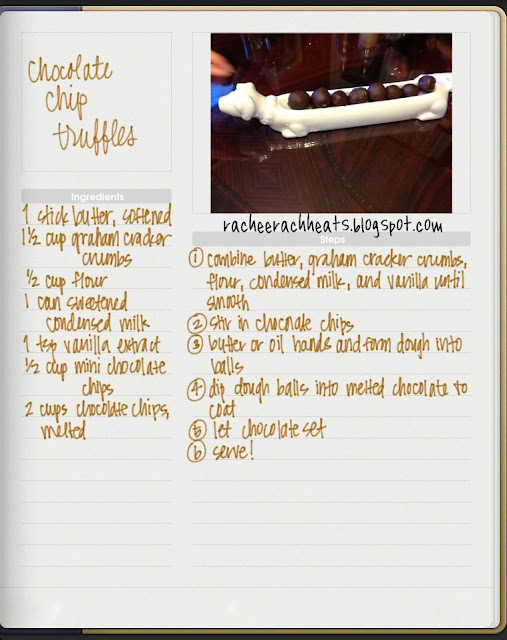 chocolate
chip
truffles
Ingredients
1 stick butter, softened
1 1/2 cup graham cracker
crumbs
1/2 cup flour
1 can sweetened
condensed milk
1 tsp vanilla extract
1/2 cup mini chocolate
chips
2 cups chocolate chips,
melted
racheerachheats.blogspot.com
Steps
1 combine butter, graham cracker crumbs,
flour, condensed milk, and vanilla until
smooth
2 stir in chocolate chips
3 butter or oil hands and form dough into
balls
4 dip dough balls into melted chocolate to
coat
5 let chocolate set
6 serve!